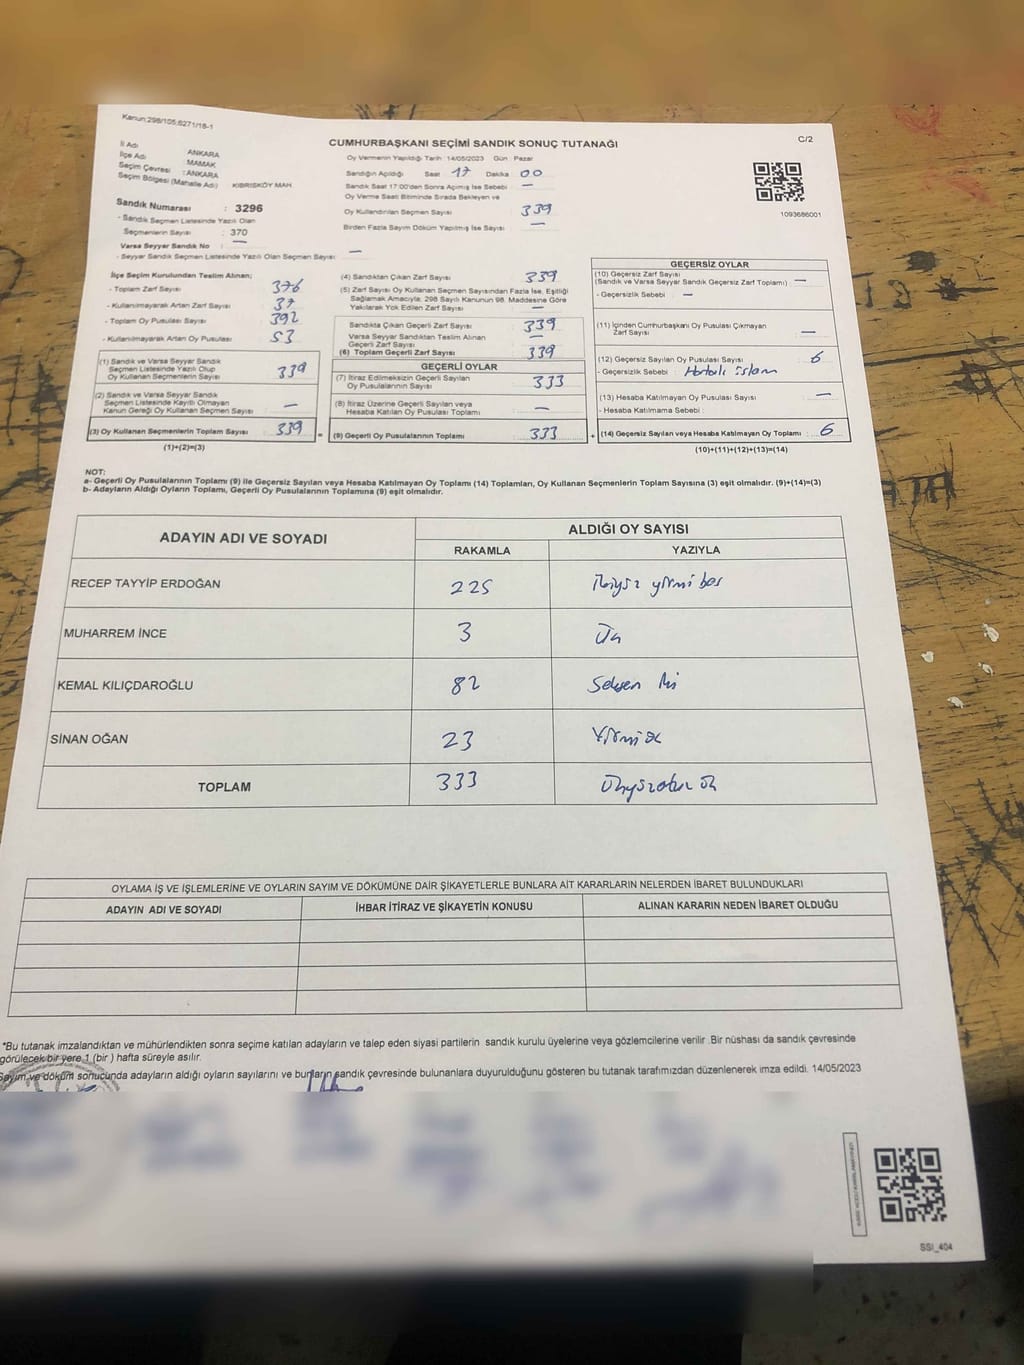 Kanun;298/105,6271/18-1
C/2
CUMHURBAŞKANI SEÇİMİ SANDIK SONUÇ TUTANAĞI
İl Adı ANKARA
İlçe Adı MAMAK
Seçim Çevresi : ANKARA
Seçim Bölgesi (Mahalle Adı) KIBRISKÖY MAH.
Sandık Numarası : 3296
- Sandık Seçmen Listesinde Yazılı Olan
Seçmenlerin Sayısı : 370
Varsa Seyyar Sandık No : —
- Seyyar Sandık Seçmen Listesinde Yazılı Olan Seçmen Sayısı : —
Oy Vermenin Yapıldığı Tarih : 14/05/2023 Gün : Pazar
Sandığın Açıldığı Saat 17 Dakika 00
Sandık Saat 17:00'den Sonra Açılmış İse Sebebi : —
Oy Verme Saati Bitiminde Sırada Bekleyen ve
Oy Kullandırılan Seçmen Sayısı 339
Birden Fazla Sayım Döküm Yapılmış İse Sayısı : —
1093686001
İlçe Seçim Kurulundan Teslim Alınan;
- Toplam Zarf Sayısı 376
- Kullanılmayarak Artan Zarf Sayısı 37
- Toplam Oy Pusulası Sayısı 392
- Kullanılmayarak Artan Oy Pusulası 53
(1) Sandık ve Varsa Seyyar Sandık
Seçmen Listesinde Yazılı Olup
Oy Kullanan Seçmenlerin Sayısı 339
(2) Sandık ve Varsa Seyyar Sandık
Seçmen Listesinde Kayıtlı Olmayan
Kanun Gereği Oy Kullanan Seçmen Sayısı —
(3) Oy Kullanan Seçmenlerin Toplam Sayısı 339
(1)+(2)=(3)
(4) Sandıktan Çıkan Zarf Sayısı 339
(5) Zarf Sayısı Oy Kullanan Seçmen Sayısından Fazla İse, Eşitliği
Sağlamak Amacıyla; 298 Sayılı Kanunun 98. Maddesine Göre
Yakılarak Yok Edilen Zarf Sayısı —
Sandıkta Çıkan Geçerli Zarf Sayısı 339
Varsa Seyyar Sandıktan Teslim Alınan
Geçerli Zarf Sayısı —
(6) Toplam Geçerli Zarf Sayısı 339
GEÇERLİ OYLAR
(7) İtiraz Edilmeksizin Geçerli Sayılan
Oy Pusulalarının Sayısı 333
(8) İtiraz Üzerine Geçerli Sayılan veya
Hesaba Katılan Oy Pusulası Toplamı —
= (9) Geçerli Oy Pusulalarının Toplamı 333
GEÇERSİZ OYLAR
(10) Geçersiz Zarf Sayısı
(Sandık ve Varsa Seyyar Sandık Geçersiz Zarf Toplamı) —
- Geçersizlik Sebebi : —
(11) İçinden Cumhurbaşkanı Oy Pusulası Çıkmayan
Zarf Sayısı —
(12) Geçersiz Sayılan Oy Pusulası Sayısı 6
- Geçersizlik Sebebi :
(13) Hesaba Katılmayan Oy Pusulası Sayısı —
- Hesaba Katılmama Sebebi :
+ (14) Geçersiz Sayılan veya Hesaba Katılmayan Oy Toplamı : 6
(10)+(11)+(12)+(13)=(14)
NOT:
a- Geçerli Oy Pusulalarının Toplamı (9) ile Geçersiz Sayılan veya Hesaba Katılmayan Oy Toplamı (14) Toplamları, Oy Kullanan Seçmenlerin Toplam Sayısına (3) eşit olmalıdır. (9)+(14)=(3)
b- Adayların Aldığı Oyların Toplamı, Geçerli Oy Pusulalarının Toplamına (9) eşit olmalıdır.
ADAYIN ADI VE SOYADI ALDIĞI OY SAYISI
RAKAMLA YAZIYLA
RECEP TAYYİP ERDOĞAN 225 ikiyüz yirmi beş
MUHARREM İNCE 3 Üç
KEMAL KILIÇDAROĞLU 82 Seksen iki
SİNAN OĞAN 23 Yirmi üç
TOPLAM 333 Üçyüzotuz üç
OYLAMA İŞ VE İŞLEMLERİNE VE OYLARIN SAYIM VE DÖKÜMÜNE DAİR ŞİKAYETLERLE BUNLARA AİT KARARLARIN NELERDEN İBARET BULUNDUKLARI
ADAYIN ADI VE SOYADI İHBAR İTİRAZ VE ŞİKAYETİN KONUSU ALINAN KARARIN NEDEN İBARET OLDUĞU
*Bu tutanak imzalandıktan ve mühürlendikten sonra seçime katılan adayların ve talep eden siyasi partilerin sandık kurulu üyelerine veya gözlemcilerine verilir .Bir nüshası da sandık çevresinde
görülecek bir yere 1 (bir ) hafta süreyle asılır.
Sayım ve döküm sonucunda adayların aldığı oyların sayılarını ve bunların sandık çevresinde bulunanlara duyurulduğunu gösteren bu tutanak tarafımızdan düzenlenerek imza edildi. 14/05/2023
SSİ_404